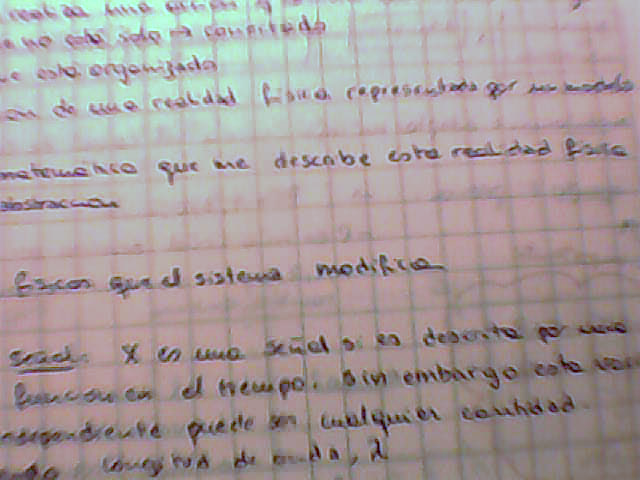 realiza una acción y
no está solo es
que está organizado
on de una realidad física representada por un modelo
matemático que me describe esta realidad física
abstracción
físicas que el sistema modifica
Señal: X es una señal si es descrita por una
función en el tiempo. Sin embargo esta
independiente puede ser cualquier cantidad.
longitud de onda, λ